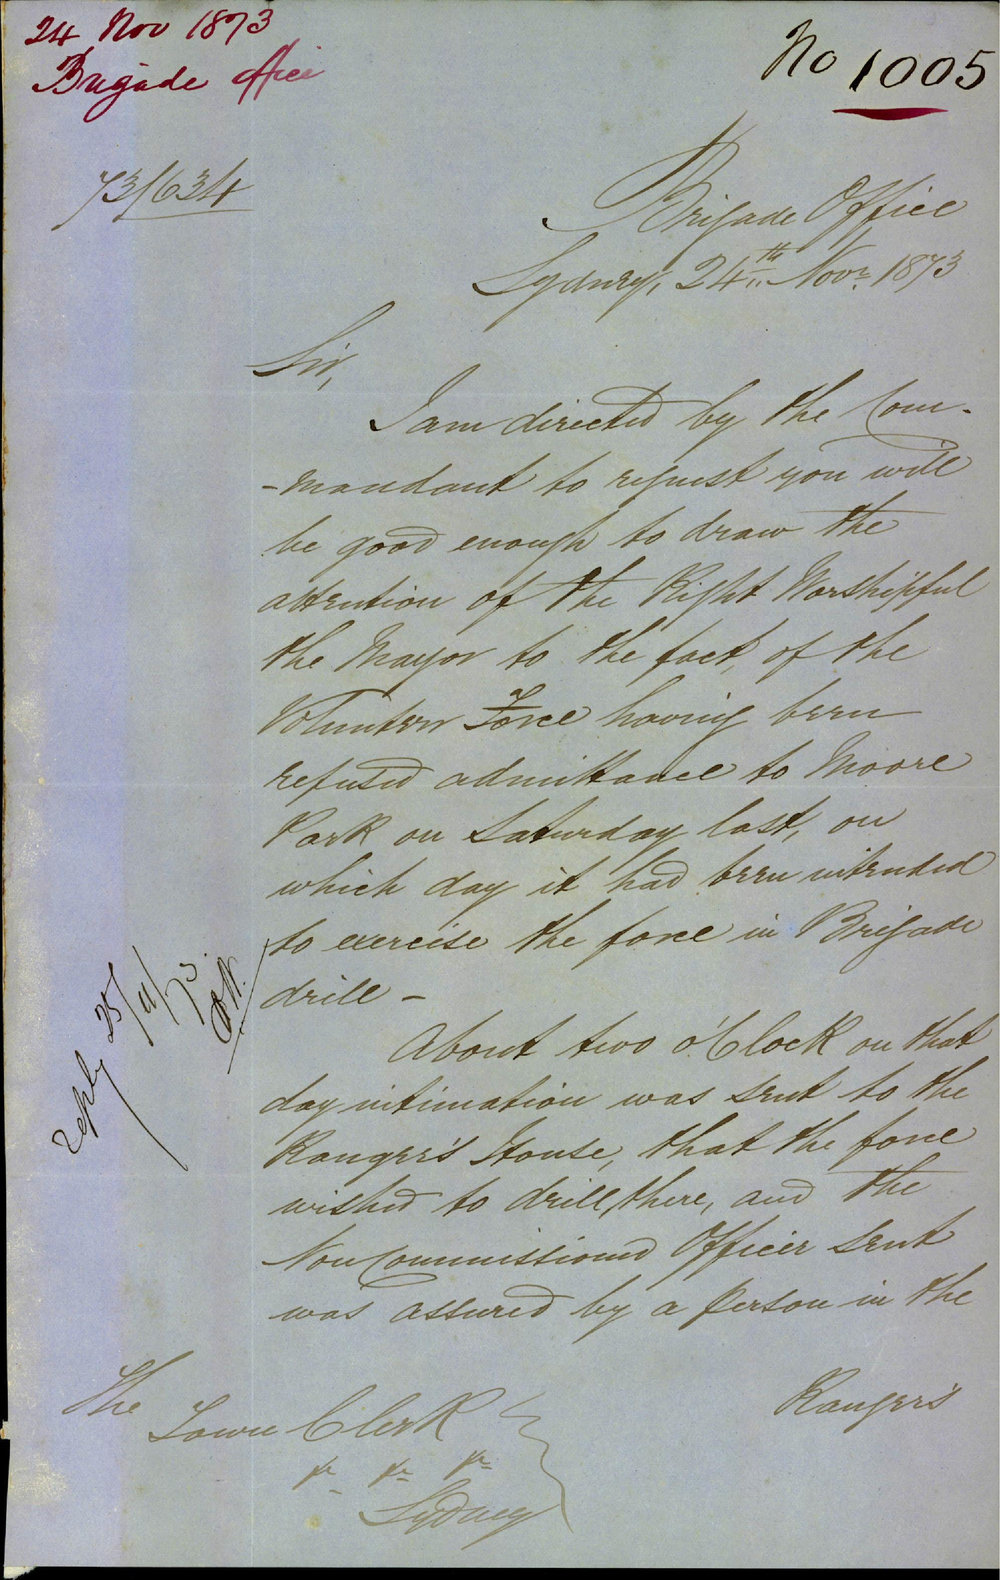 24 Nov 1873
Brigade Office
No 1005
73/634
Brigade Office
Sydney, 24th Novr 1873
Sir,
I am directed by the Com-
-mandant to request you will
be good enough to draw the
attention of the Right Worshipful
the Mayor to the fact, of the
Volunteer Force having been
refused admittance to Moore
Park on Saturday last, on
which day it had been intended
to exercise the force in Brigade
drill -
About two o'Clock on that
day intimation was sent to the
Ranger's House, that the force
wished to drill there, and the
Non Commissioned Officer sent
was assured by a person in the
Ranger's
reply 25/11/73
The
Town Clerk
Sydney